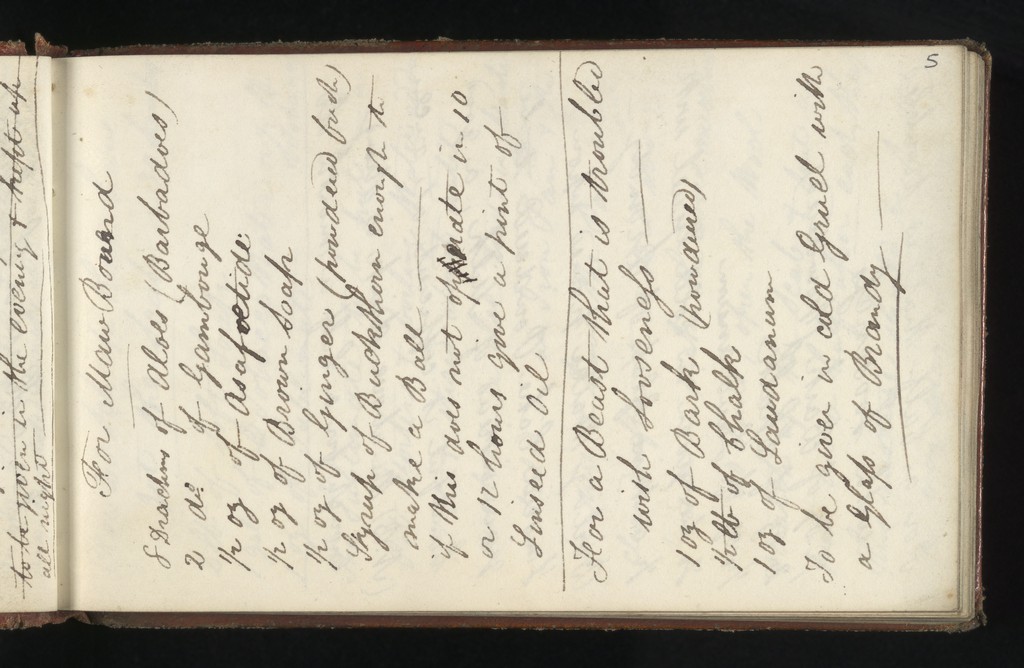 to be given in the evening & kept up
all night
5
For Maw Bound
8 Drachms of Aloes (Barbadoes)
2 do of Gambouge
1/2 oz of Asafoetide
1/2 oz of Brown Soap
1/2 oz of Ginger (powdered fresh)
Syrup of Buckthorn enough to
make a Ball
if this does not operate in 10
or 12 hours give a pint of
Linseed Oil
For a Beast that is troubled
with Looseness
1 oz of Bark (powdered)
1/2 lb of Chalk
1 oz of Laudanum
To be given in cold Gruel with
a Glass of Brandy